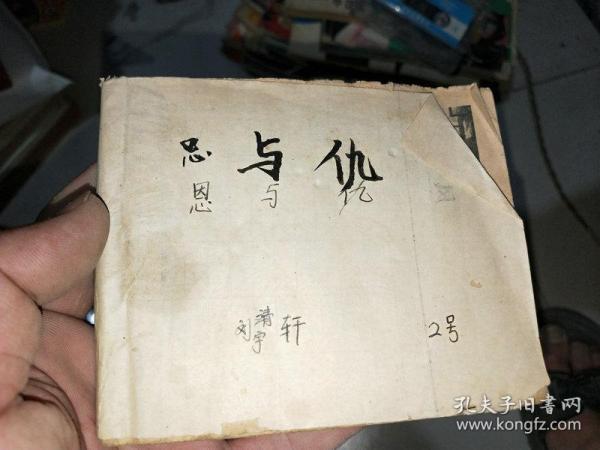 恩与仇
恩与仇
刘清宇轩
2号
孔夫子旧书网
www.kongfz.com